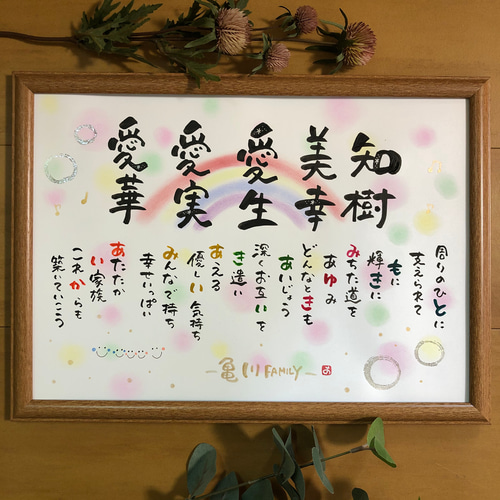 知樹
美幸
愛生
愛実
愛華
周りのひとに
支えられて
もに
輝きに
みちた道を
あゆみ
どんなときも
あいじょう
深くお互いを
き遣い
あえる
優しい気持ち
みんなで持ち
幸せいっぱい
あたたか
い家族
これからも
築いていこう
亀川FAMILY